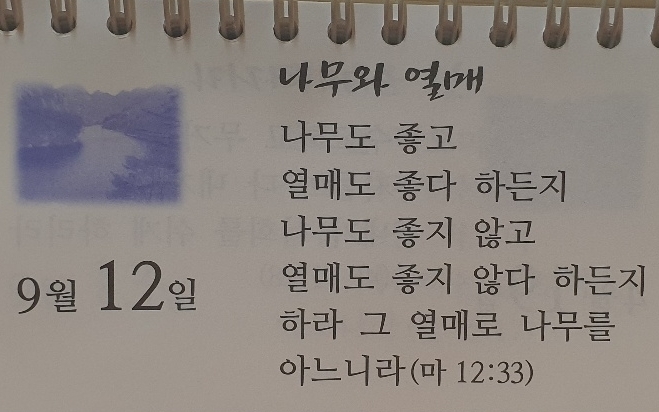 나무와 열매
나무도 좋고
열매도 좋다 하든지
나무도 좋지 않고
열매도 좋지 않다 하든지
하라 그 열매로 나무를
아느니라(마 12:33)
9월 12일